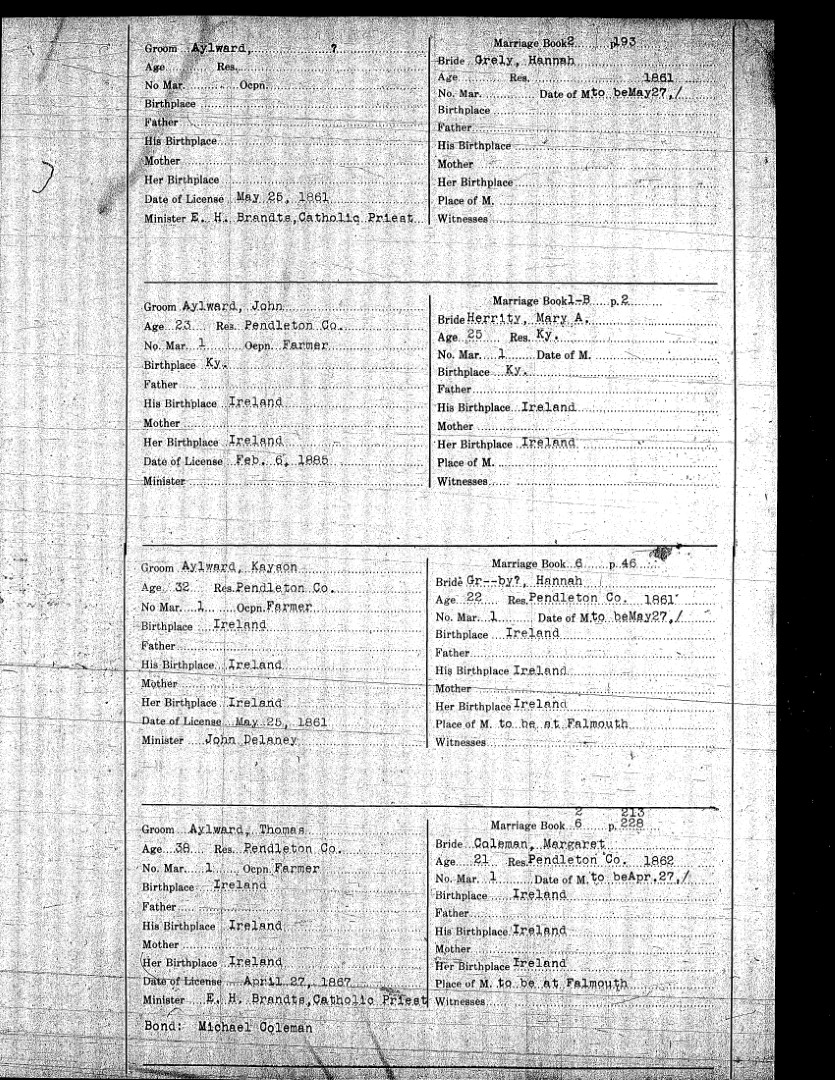 Groom Aylward, ?
Age Res.
No Mar. Ocpn.
Birthplace
Father
His Birthplace
Mother
Her Birthplace
Date of License May 25, 1861
Minister E. H. Brandts, Catholic Priest
Marriage Book 2 p193
Bride Grely, Hannah
Age Res. 1861
No. Mar. Date of M. to be May 27, /
Birthplace
Father
His Birthplace
Mother
Her Birthplace
Place of M.
Witnesses
Groom Aylward, John
Age 23 Res. Pendleton Co.
No. Mar. 1 Ocpn. Farmer
Birthplace Ky.
Father
His Birthplace Ireland
Mother
Her Birthplace Ireland
Date of License Feb. 6, 1885
Minister
Marriage Book 1-B p. 2
Bride Herrity, Mary A.
Age 25 Res. Ky.
No. Mar. 1 Date of M.
Birthplace Ky.
Father
His Birthplace Ireland
Mother
Her Birthplace Ireland
Place of M.
Witnesses
Groom Aylward, Kayson
Age 32 Res. Pendleton Co.
No Mar. 1 Ocpn. Farmer
Birthplace Ireland
Father
His Birthplace Ireland
Mother
Her Birthplace Ireland
Date of License May 25, 1861
Minister John Delaney
Marriage Book 6 p. 46
Bride Gr--by?, Hannah
Age 22 Res. Pendleton Co. 1861
No. Mar. 1 Date of M. to be May 27, /
Birthplace Ireland
Father
His Birthplace Ireland
Mother
Her Birthplace Ireland
Place of M. to be at Falmouth
Witnesses
Groom Aylward, Thomas
Age 38 Res. Pendleton Co.
No. Mar. 1 Ocpn. Farmer
Birthplace Ireland
Father
His Birthplace Ireland
Mother
Her Birthplace Ireland
Date of License April 27, 1867
Minister E. H. Brandts, Catholic Priest
Bond: Michael Coleman
2 213
Marriage Book 6 p. 228
Bride Coleman, Margaret
Age 21 Res. Pendleton Co. 1862
No. Mar. 1 Date of M. to be Apr. 27, /
Birthplace Ireland
Father
His Birthplace Ireland
Mother
Her Birthplace Ireland
Place of M. to be at Falmouth
Witnesses